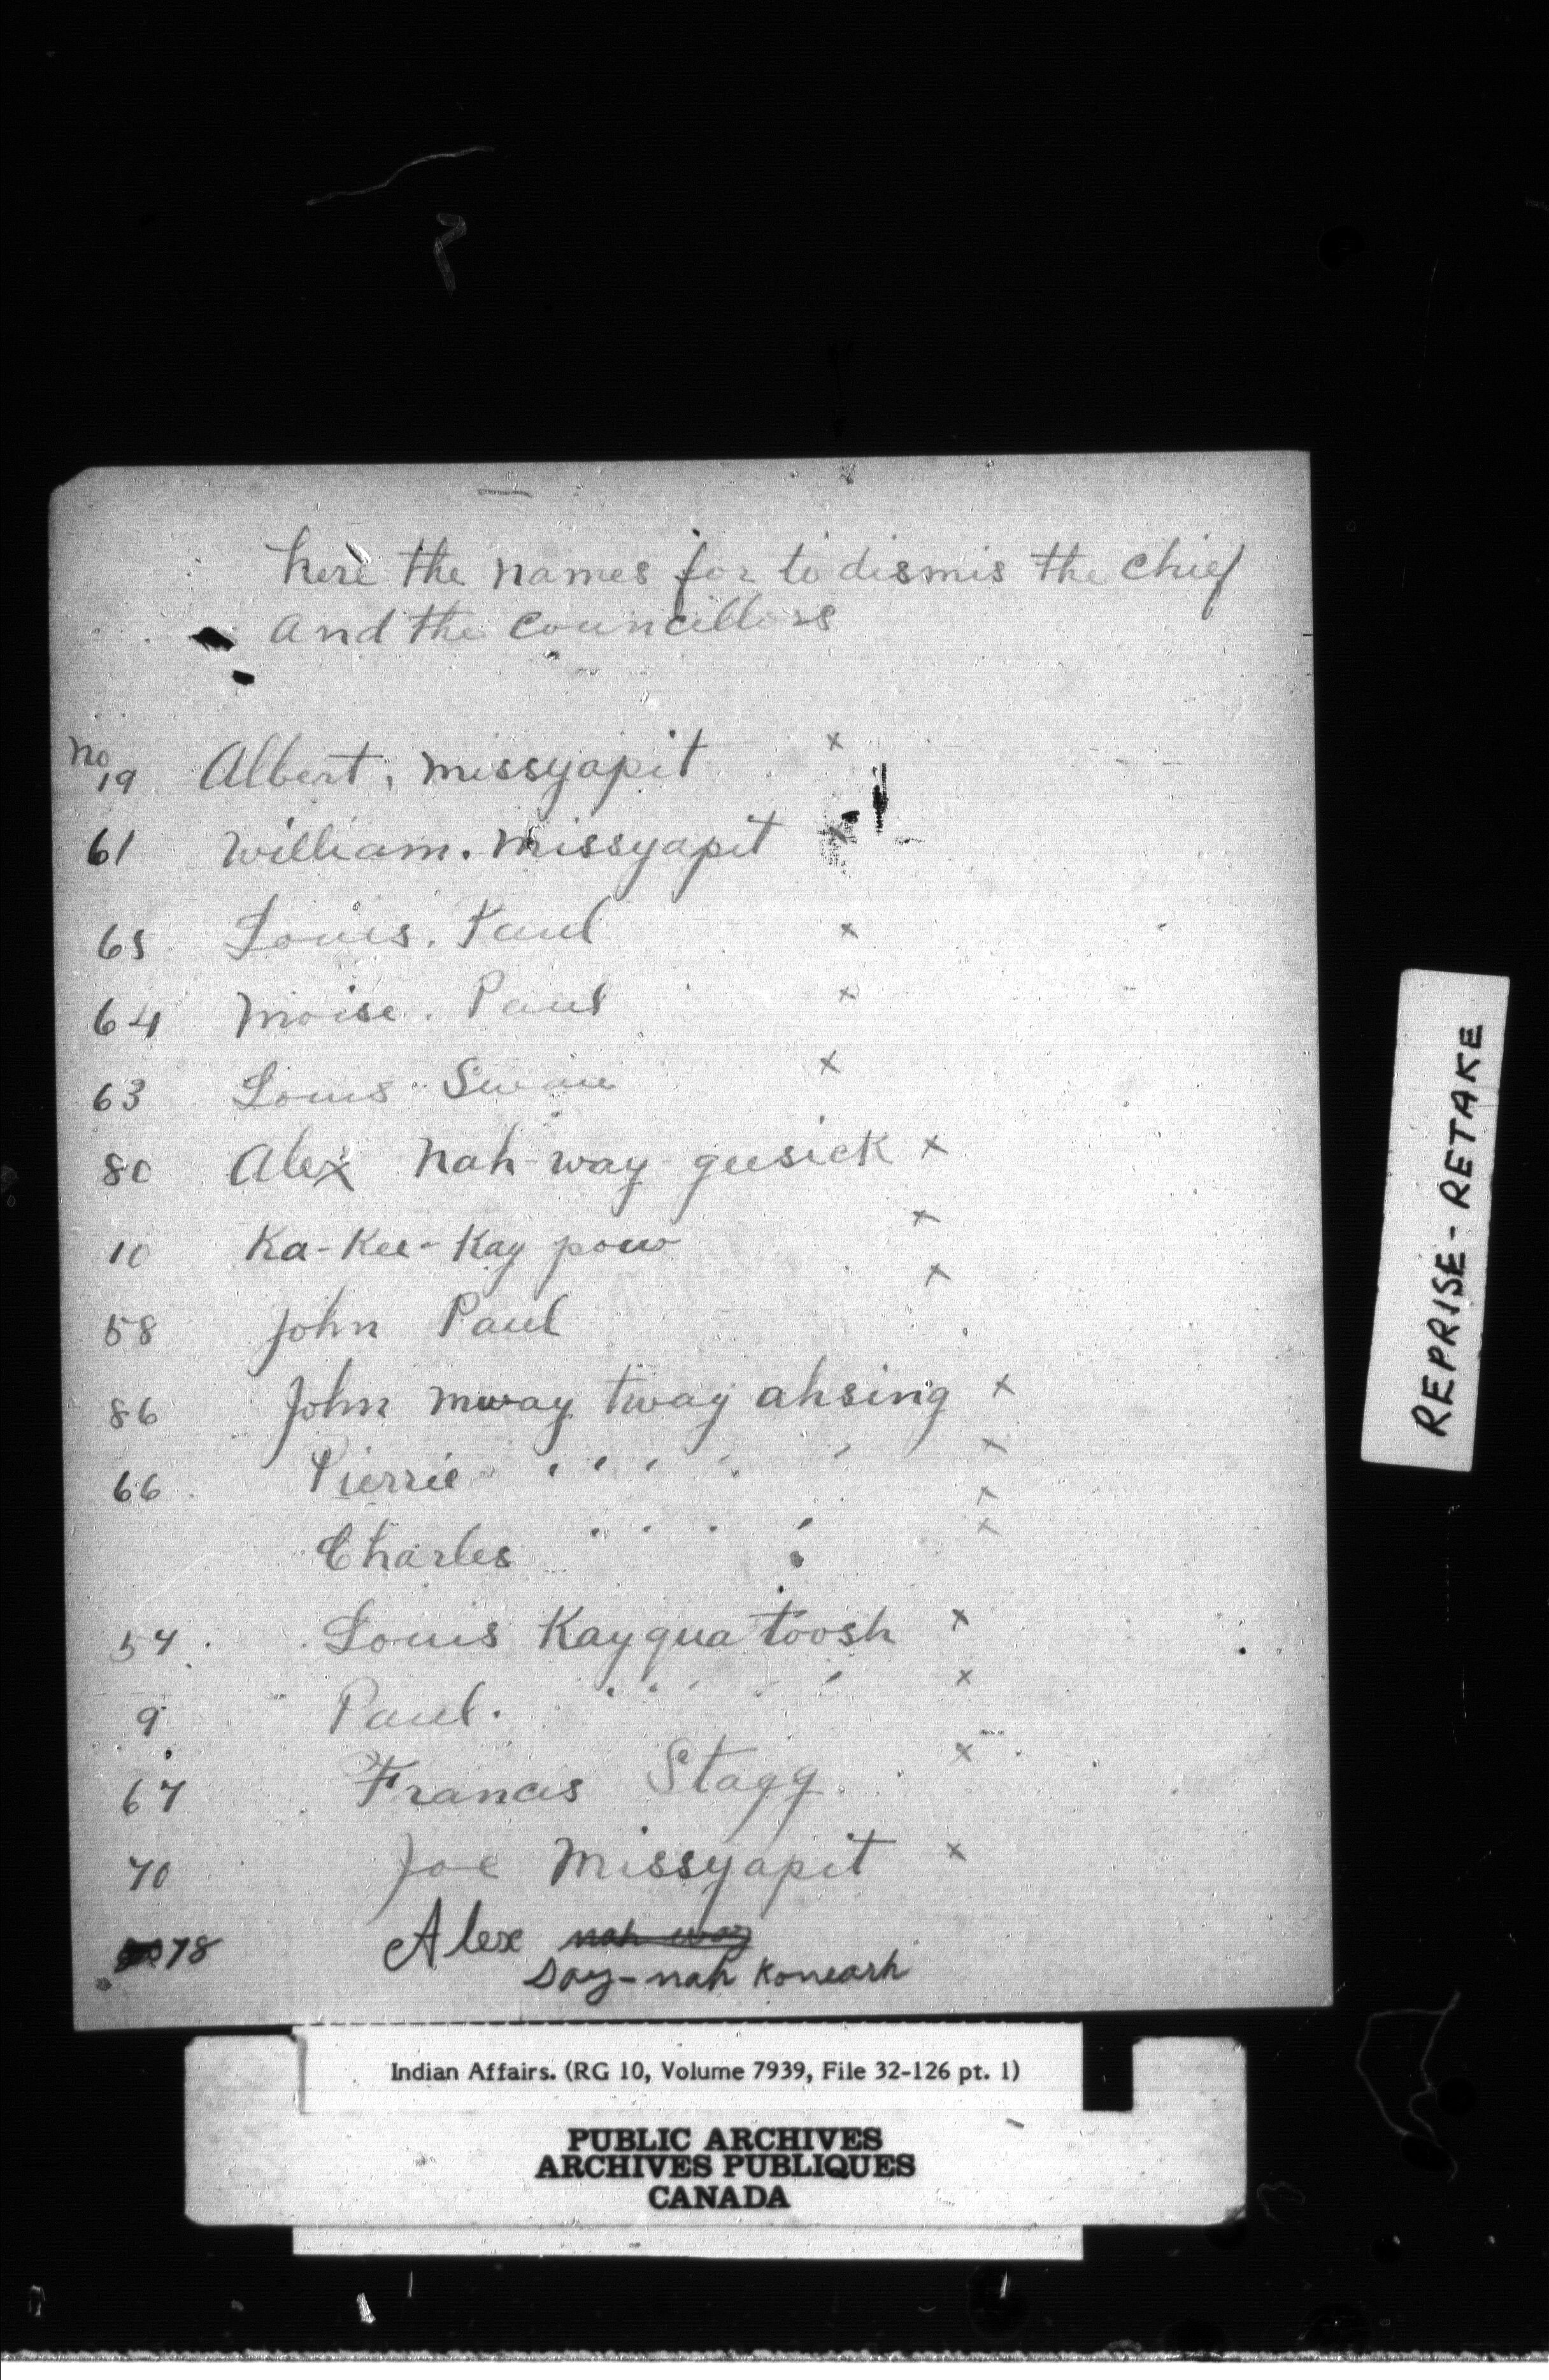 here the names for to dismis the chief
and the councillors
No
19 Albert, missyapit x
61 William. missyapit x
65 Louis. Paul x
64 moise. Paul x
63 Louis Swain x
80 Alex nah-way-geesick x
10 Ka-Kee-Kay pow x
58 John Paul x
86 John mway tway ahsing x
66 Pierrie " " " " " x
Charles " " " " x
54 Louis Kayqua toosh x
9 Paul. " " " " " x
67 Francis Stagg x
70 Joe Missyapit x
78 Alex nah way
Day-nah Koneash
REPRISE - RETAKE
Indian Affairs. (RG 10, Volume 7939, File 32-126 pt. 1)
PUBLIC ARCHIVES
ARCHIVES PUBLIQUES
CANADA